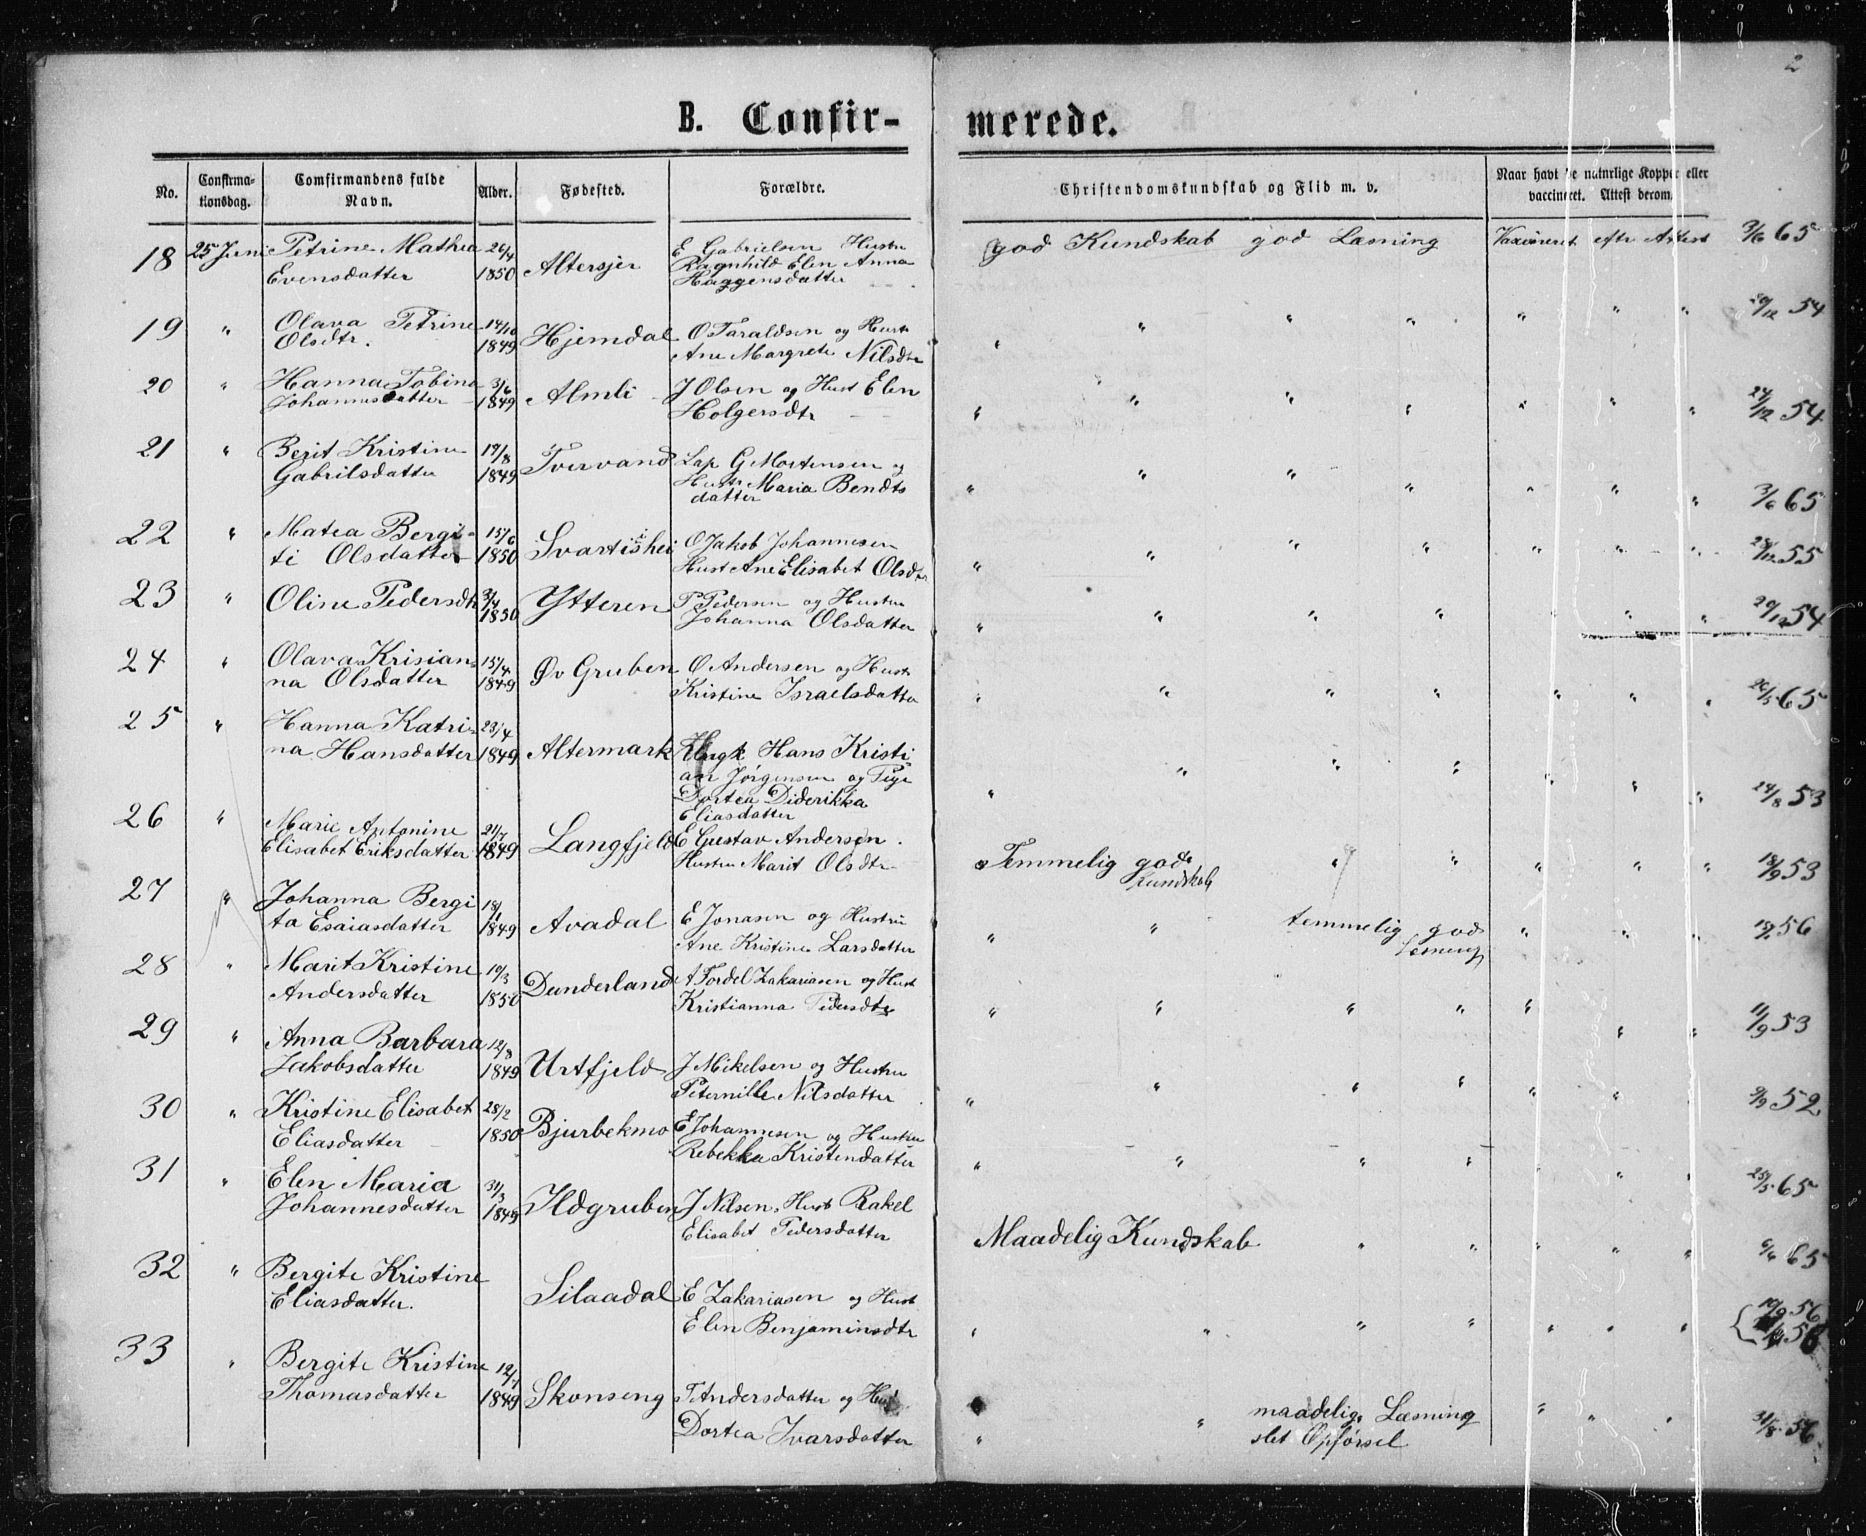 2
B. Confir- merede.
No. Confirma-tionsdag. Comfirmandens fulde Navn. Alder. Fødested. Forældre. Christendomskundskab og Flid m. v. Naar havt de naturlige Kopper eller vaccineret. Attest derom.
18 25 Juni Petrine Mathea 26/4 E Gabrielsen Hustru god Kundskab god Læsning Vaxineret eftr Attest 3/6 65
Evensdatter 1850 Altersjer Ragnhild Elen Anna
Haggensdatter
19 " Olava Petrine 14/10 O Taraldsen og Hustr " " " " " " 20/12 54
Olsdtr. 1849 Hjemdal Ane Margrete Nilsdtr
20 " Hanna Tobina 3/6 J Olsen og Hust Elen " " " " " " " 24/12 54
Johannesdatter 1849 Almli Holgersdtr
21 " Berit Kristine 19/8 Lap G Mortensen og " " " " " " " 3/6 65
Gabrilsdatter 1849 Tvervand Hustr Maria Bendts
datter
22 " Matea Bergi- 15/6 O Jakob Johannesen " " " " " " " 28/12 55
ti Olsdatter 1850 Svartishei Hust Ane Elisabet Olsdtr
23 " Oline Pedersdtr 3/4 P Pedersen og Hustru " " " " " " " 20/12 54
1850 Ytteren Johanna Olsdatter
24 " Olava Krisian- 15/4 O Andersen og Hustr " " " " " " " 26/5 65
na Olsdatter 1849 Øv Gruben Kristine Israelsdatter
25 " Hanna Katri- 23/4
na Hansdatter 1849 Altermark Ungk Hans Kristi " " " " " " " 24/8 53
an Jørgensen og Pige
Dortea Diderikka
Eliasdatter
26 " Marie Antonine 21/7
Elisabet Eriksdatter 1849 Langfjeld E Gustav Andersen Temmelig god Kundskab " " " " " 18/9 53
Hustru Marit Olsdtr
27 " Johanna Bergi 18/1
ta Esaiasdatter 1849 Avadal E Jonasen og Hustru " " temmelig god " " " 56
Ane Kristine Larsdatter
28 " Marit Kristine 10/3 A Tordel Zakariasen og Hust " " " " " " " 11/9 53
Andersdatter 1850 Dunderland Kristianna Pedersdtr
29 " Anna Barbara 12/8
Jakobsdatter 1849 Urtfjeld J Mikelsen og Hustru " " " " " " 9/9 52
Peternille Nilsdatter
30 " Kristine Elisabet 28/2
Eliasdatter 1850 Bjurbekmo E Johannesen og Hustru " " " " " " " 25/5 65
Rebekka Kristendatter
31 " Elen Maria 31/3
Johannesdatter 1849 Ildgruben J Nilsen, Hust Rakel Maadelig Kundskab " " " " " 6/6 65
Elisabet Pedersdatter
32 " Bergite Kristine
Eliasdatter. Silaadal E Zakariasen og Hust " " " " " " " 56
Elen Benjaminsdtr
33 " Bergite Kristine 12/7
Thomasdatter 1849 Skonseng T Andersdatter og Hust " " maadelig Læsning " " " 31/8 56
Dortea Ivarsdatter slet Opførsel